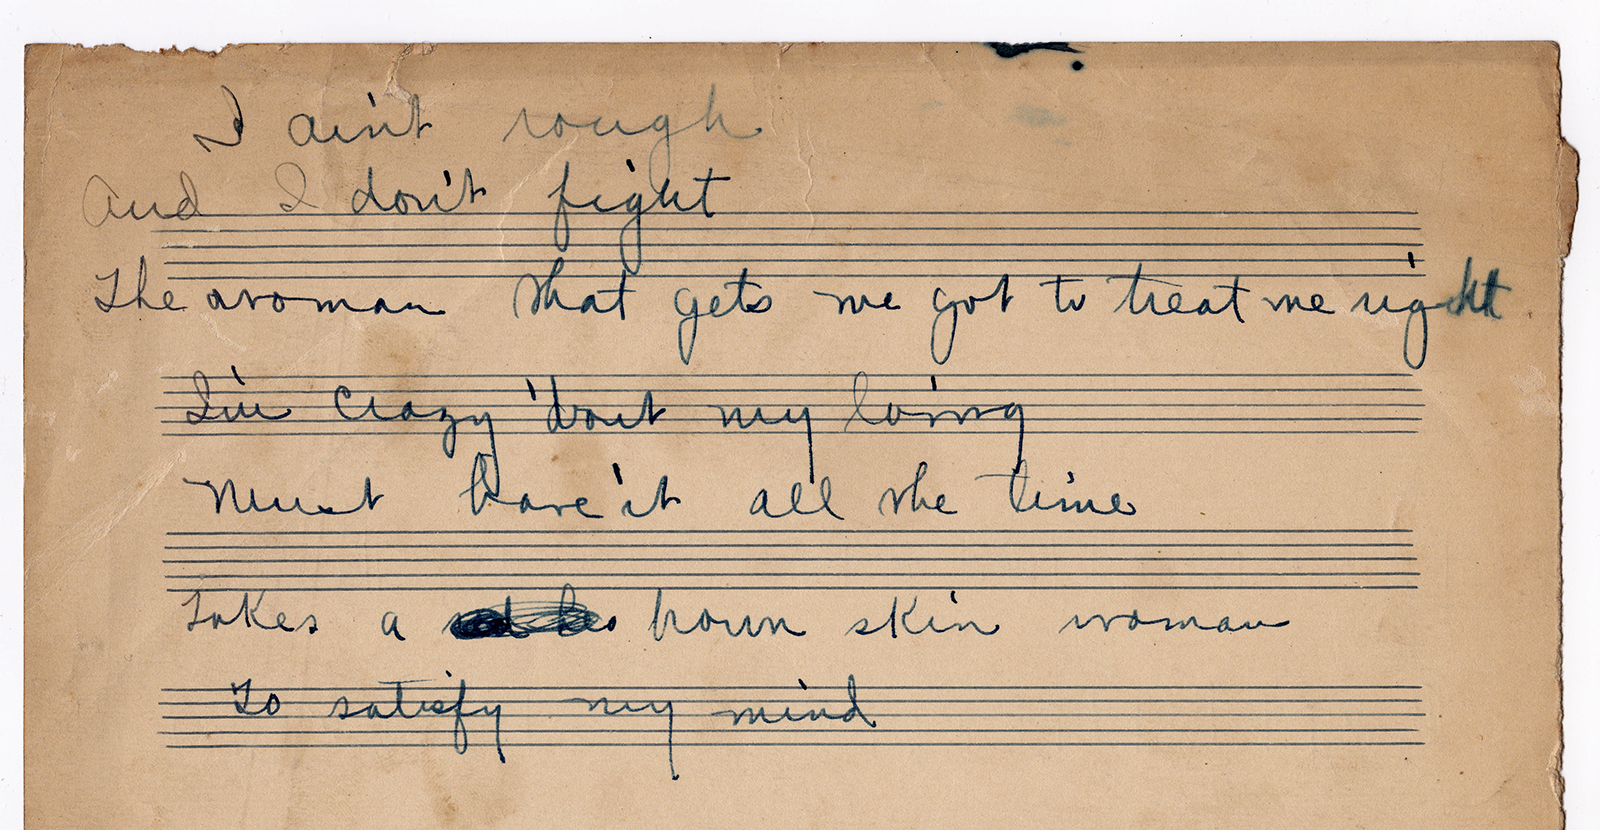 I ain't rough
And I don't fight
The woman that gets me got to treat me right
I'm crazy 'bout my lo'ing
Must have it all the time
Takes a brown skin woman
To satisfy my mind